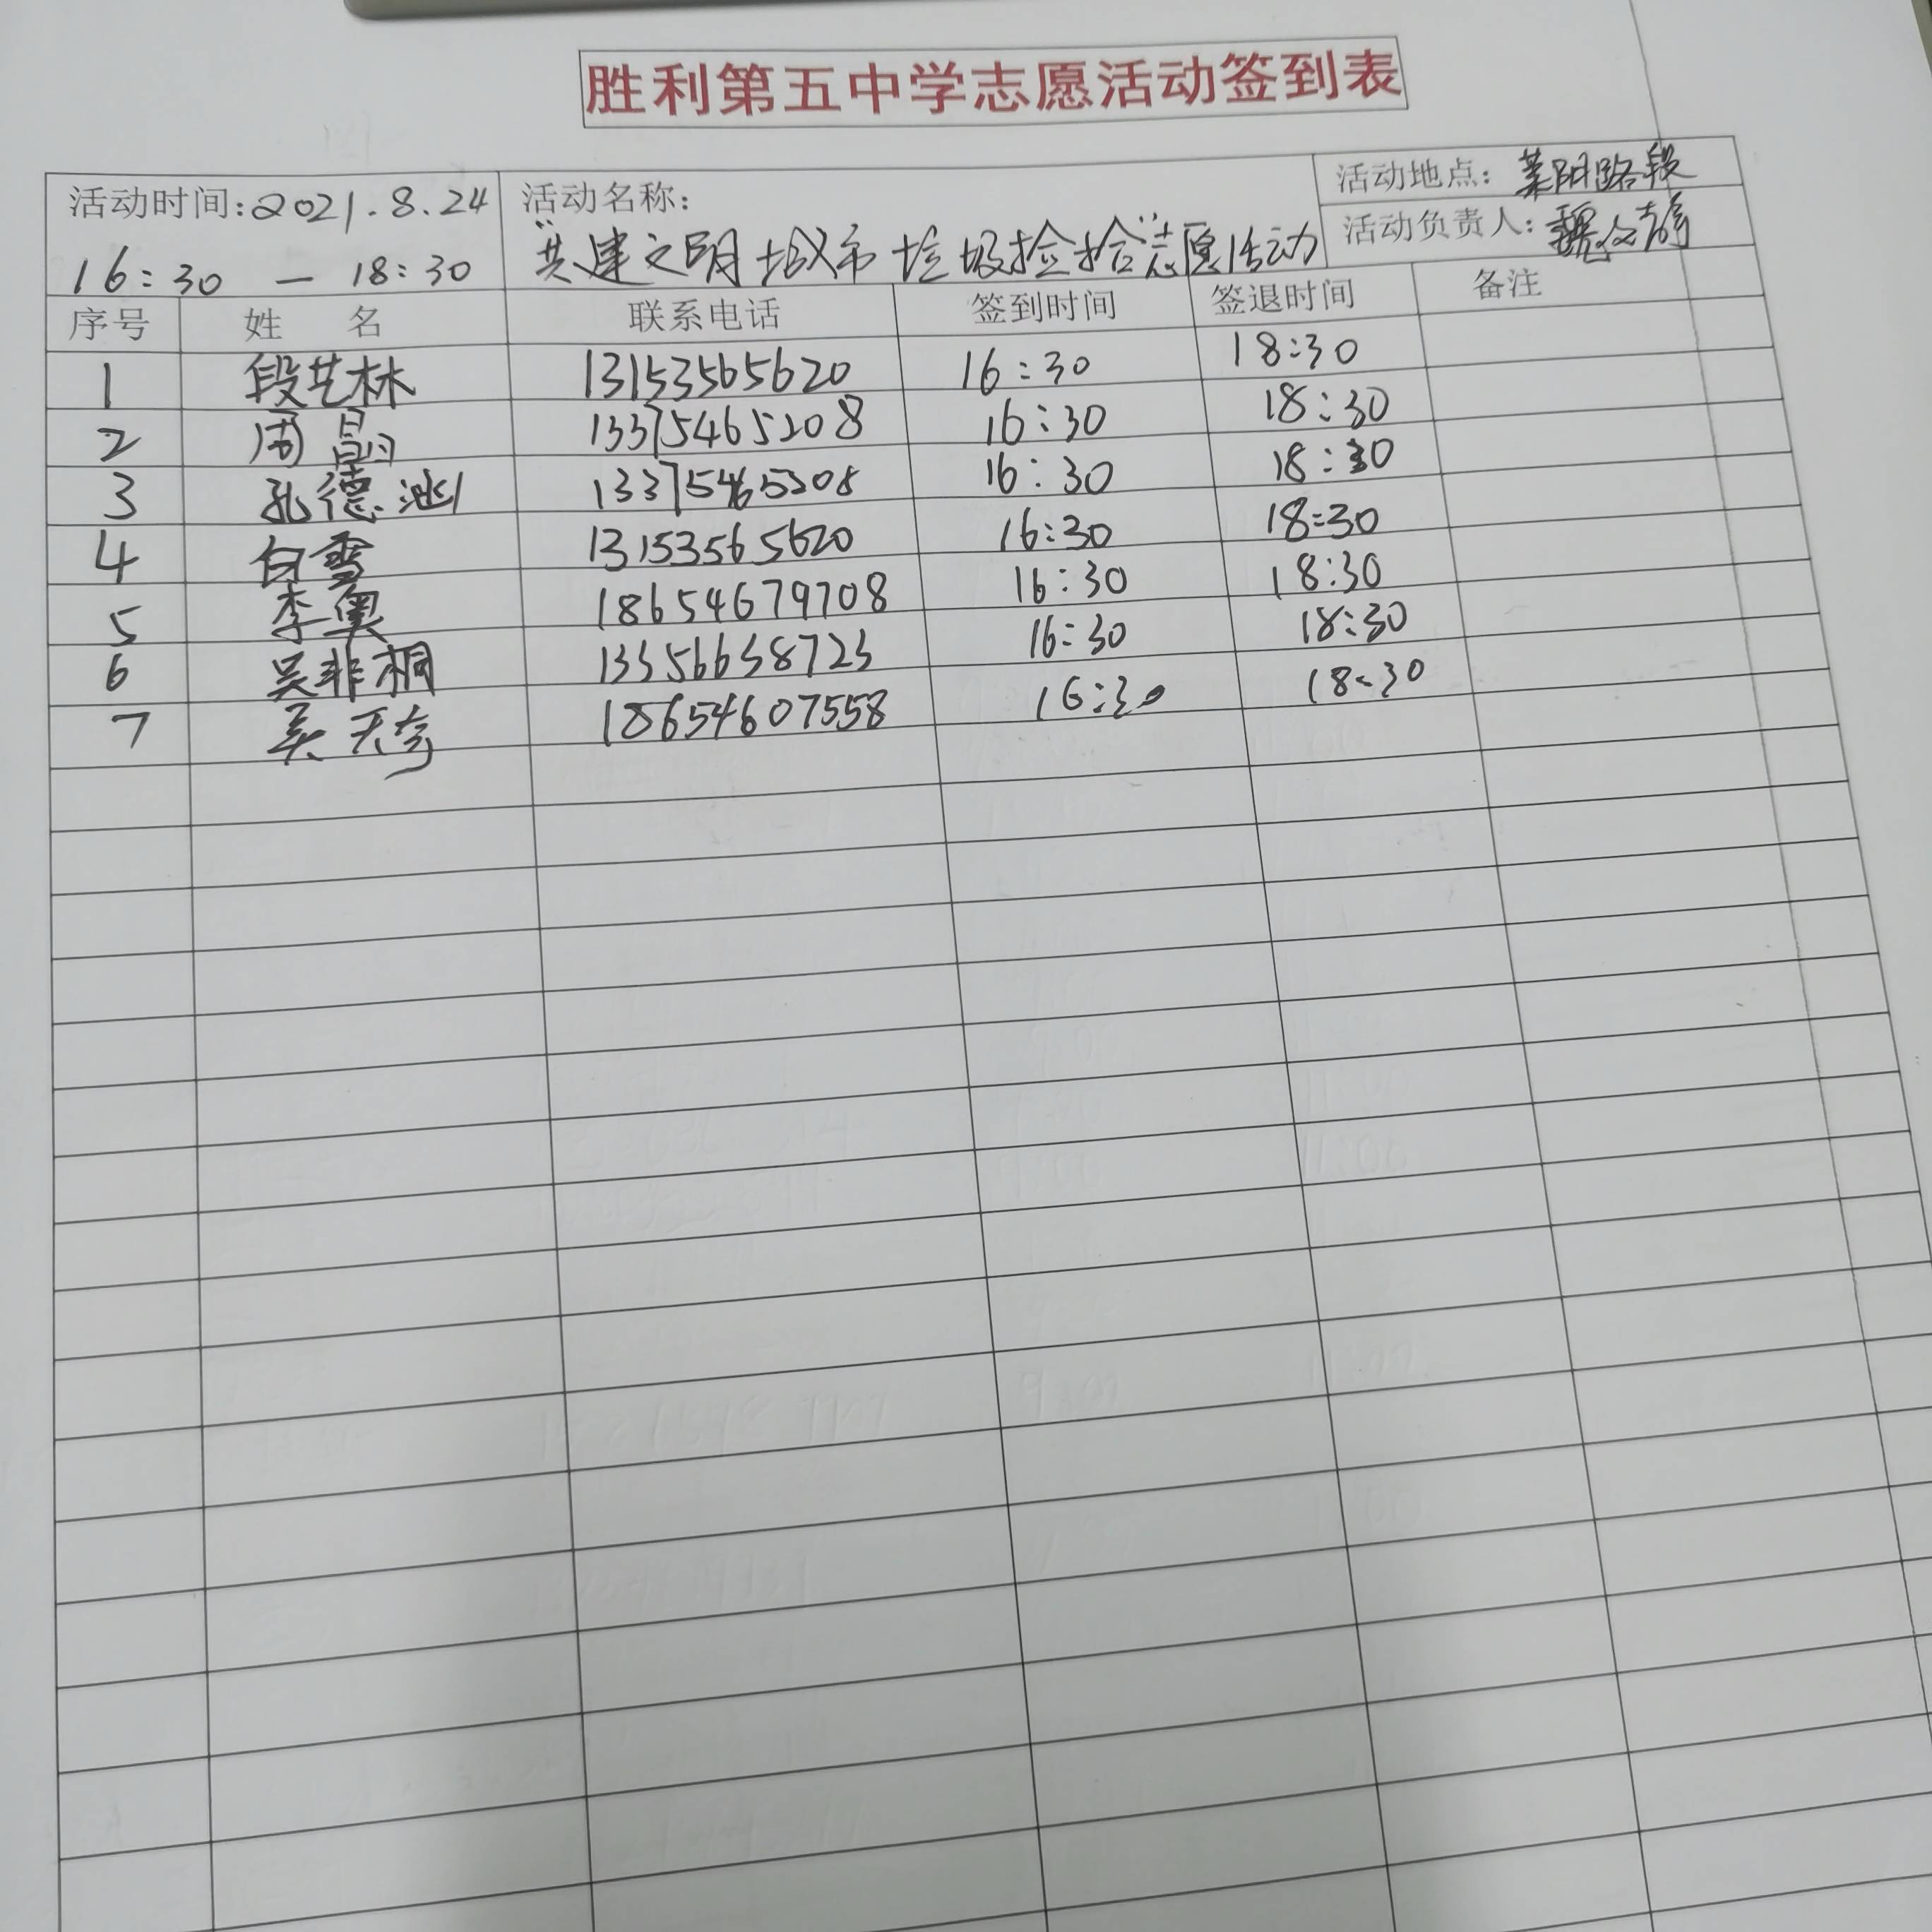 胜利第五中学志愿活动签到表
活动时间:2021.8.24
16:30 — 18:30
活动名称:
"共建文明城市垃圾捡拾"志愿活动
活动地点: 莱阳路段
活动负责人: 魏文
序号 姓 名 联系电话 签到时间 签退时间 备注
1 段艺林 13153565620 16:30 18:30
2 周 13375465208 16:30 18:30
3 孔德 13375465208 16:30 18:30
4 白雪 13153565620 16:30 18:30
5 李奥 18654679708 16:30 18:30
6 吴非桐 13356638723 16:30 18:30
7 吴天奇 18654607558 16:30 18:30